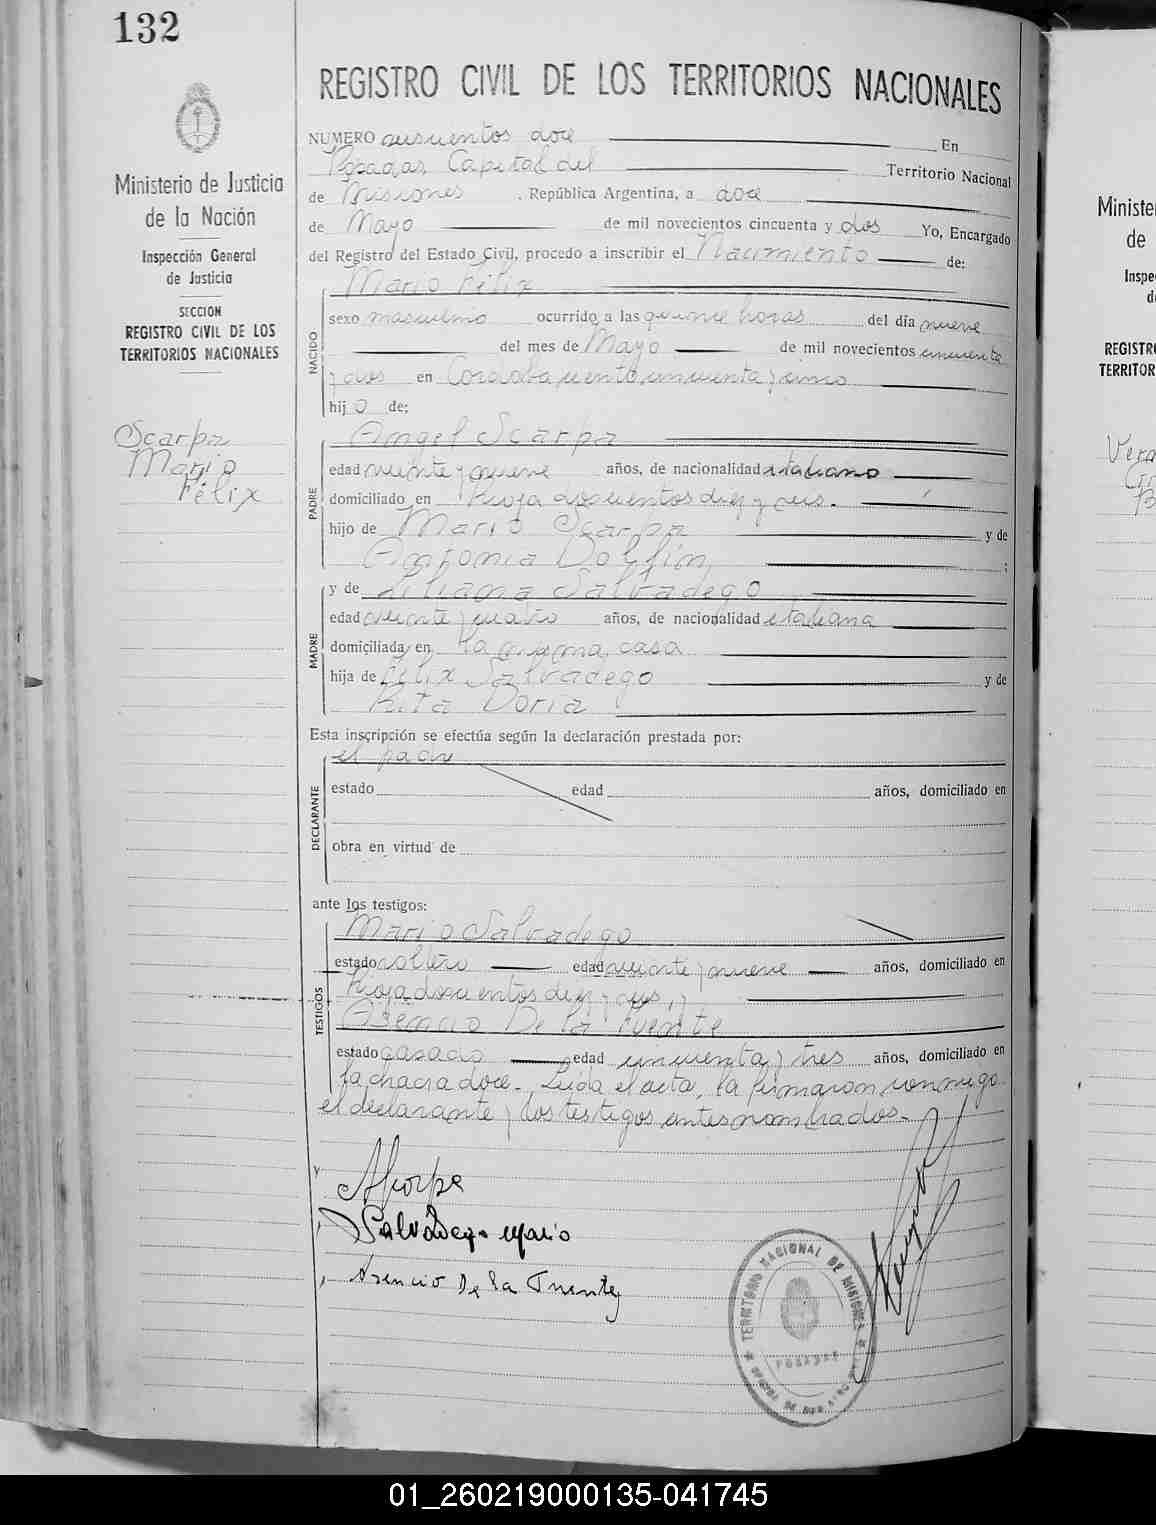 132
REGISTRO CIVIL DE LOS TERRITORIOS NACIONALES
Ministerio de Justicia
de la Nación
Inspección General
de Justicia
SECCION
REGISTRO CIVIL DE LOS
TERRITORIOS NACIONALES
Scarpa
Mario
Félix
NUMERO doce En
Posadas Capital del Territorio Nacional
de Misiones , República Argentina, a doce
de Mayo de mil novecientos cincuenta y dos Yo, Encargado
del Registro del Estado Civil, procedo a inscribir el Nacimiento de:
NACIDO
Mario Félix
sexo masculino ocurrido a las quince horas del día nueve
del mes de Mayo de mil novecientos cincuenta
y dos en Córdoba ciento cincuenta y cinco
hij o de:
PADRE
Angel Scarpa
edad veinte y nueve años, de nacionalidad italiano
domiciliado en Rioja doscientos diez y seis.
hijo de Mario Scarpa y de
Antonia Dolfin ;
MADRE
y de Liliana Salvadego
edad veinte y cuatro años, de nacionalidad italiana
domiciliada en la misma casa
hija de Félix Salvadego y de
Rita Doria
Esta inscripción se efectúa según la declaración prestada por:
DECLARANTE
el padre
estado edad años, domiciliado en
obra en virtud de
ante los testigos:
TESTIGOS
Mario Salvadego
estado soltero edad veinte y nueve años, domiciliado en
Rioja doscientos diez y seis, y
Asencio De la Fuente
estado casado edad cincuenta y tres años, domiciliado en
la chacra doce. Leida el acta, la firmaron conmigo
el declarante y los testigos antes nombrados.
AScarpa
Salvadego Mario
Asencio De la Fuente
TERRITORIO NACIONAL DE MISIONES
POSADAS
Ministe
de
Inspe
d
REGISTR
TERRITOR
01_260219000135-041745